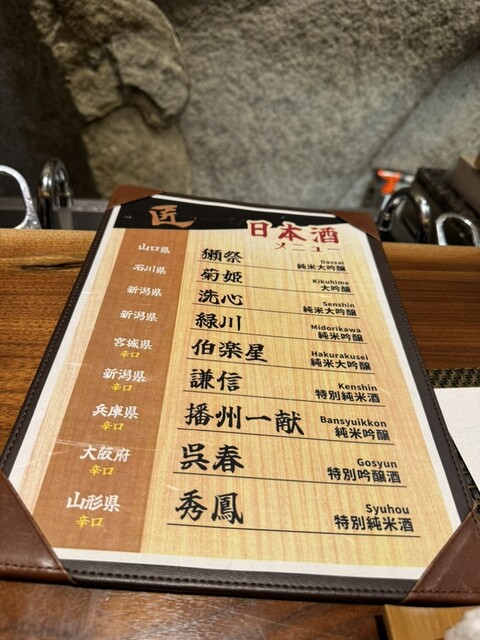 匠
日本酒
メニュー
山口県 獺祭 Dassai 純米大吟醸
石川県 菊姫 Kikuhime 大吟醸
新潟県 洗心 Senshin 純米大吟醸
新潟県 緑川 Midorikawa 純米吟醸
宮城県 辛口 伯楽星 Hakurakusei 純米大吟醸
新潟県 辛口 謙信 Kenshin 特別純米酒
兵庫県 辛口 播州一献 Bansyuikkon 純米吟醸
大阪府 辛口 呉春 Gosyun 特別吟醸酒
山形県 辛口 秀鳳 Syuhou 特別純米酒